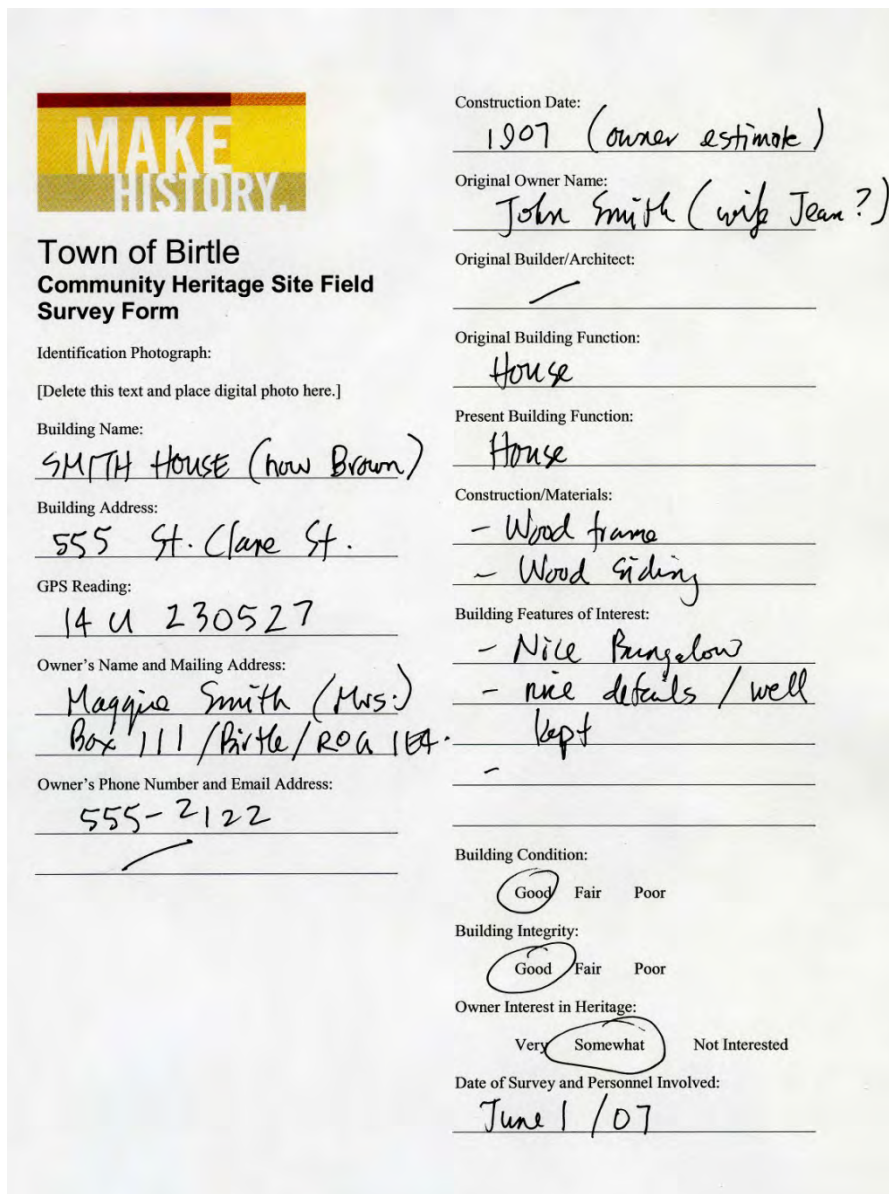 MAKE
HISTORY.
Town of Birtle
Community Heritage Site Field
Survey Form
Identification Photograph:
[Delete this text and place digital photo here.]
Building Name:
SMITH HOUSE (now Brown)
Building Address:
555 St. Clare St.
GPS Reading:
14 U 230527
Owner's Name and Mailing Address:
Maggie Smith (Mrs.)
Box 111 / Birtle / R0G 1E4.
Owner's Phone Number and Email Address:
555-2122
Construction Date:
1907 (owner estimate)
Original Owner Name:
John Smith (wife Jean?)
Original Builder/Architect:
Original Building Function:
House
Present Building Function:
House
Construction/Materials:
- Wood frame
- Wood Siding
Building Features of Interest:
- Nice Bungalow
- nice details / well
kept
-
Building Condition:
Good Fair Poor
Building Integrity:
Good Fair Poor
Owner Interest in Heritage:
Very Somewhat Not Interested
Date of Survey and Personnel Involved:
June 1 / 07